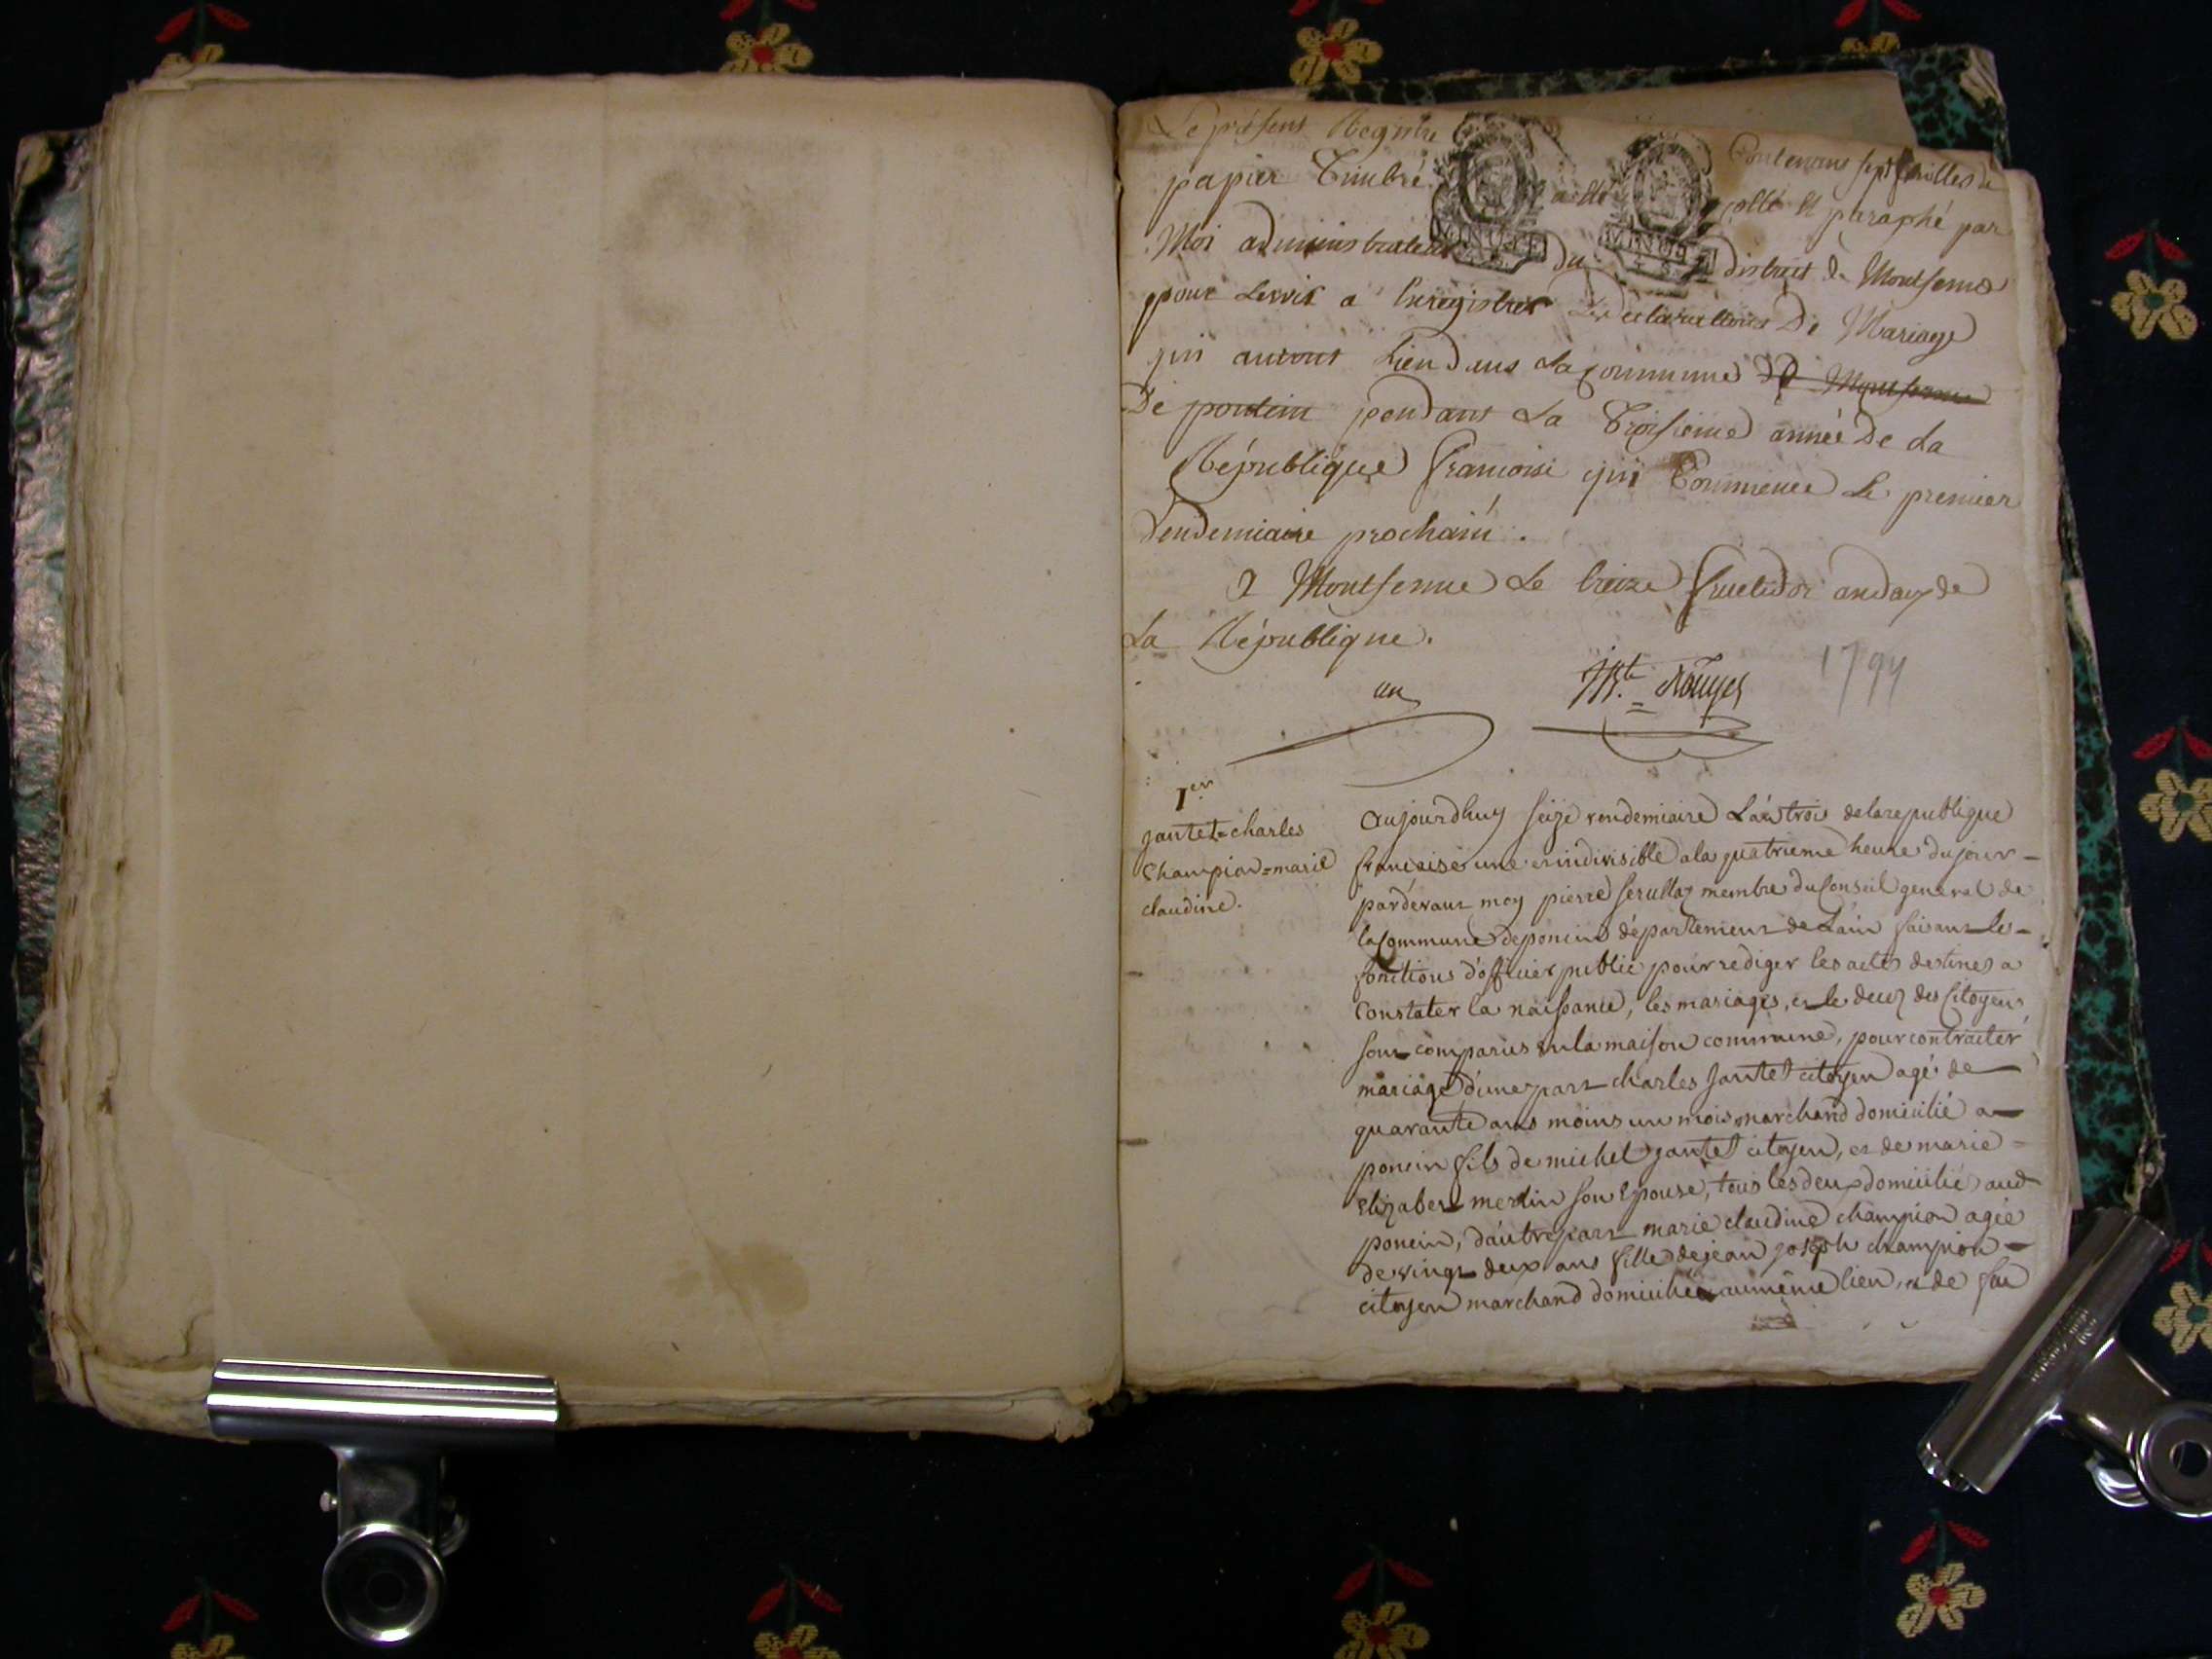 Le présent Registre Contenant sept feuilles de
papier Timbré a été cotté et paraphé par
Moi administrateur du district de Montferme
pour servir a Enregistrer Les declarations De Mariage
qui auront Lieu dans La Commune de Montferme
De poncin pendant La Troisieme année De La
République francoise qui Commence Le premier
Vendemiaire prochain.
A Montferme Le treize fructidor an deux de
La République.
un
1794
MINUTE
MINUTE
1er
jantet=charles
Champion=marie
claudine.
Aujourdhuy seize vendemiaire L'an trois de la republique
francaise une et indivisible a la quatrieme heure du jour -
pardevant moy pierre serullaz membre du Conseil general de
la Commune de poncin département de L'ain faisant les -
fonctions d'officier public pour rediger les actes destinés a
Constater la naissance, les mariages, et le deces des Citoyens,
sont comparus en la maison commune, pour contracter
mariage d'une part charles jantet citoyen agé de
quarante ans moins un mois marchand domicilié a
poncin fils de michel jantet citoyen, et de marie -
Elizabet merlin son Epouse, tous les deux domicilié aud
poncin, d'autre part marie claudine champion agée
de vingt deux ans fille de jean joseph champion -
citoyen marchand domicilié au même lieu, et de feu